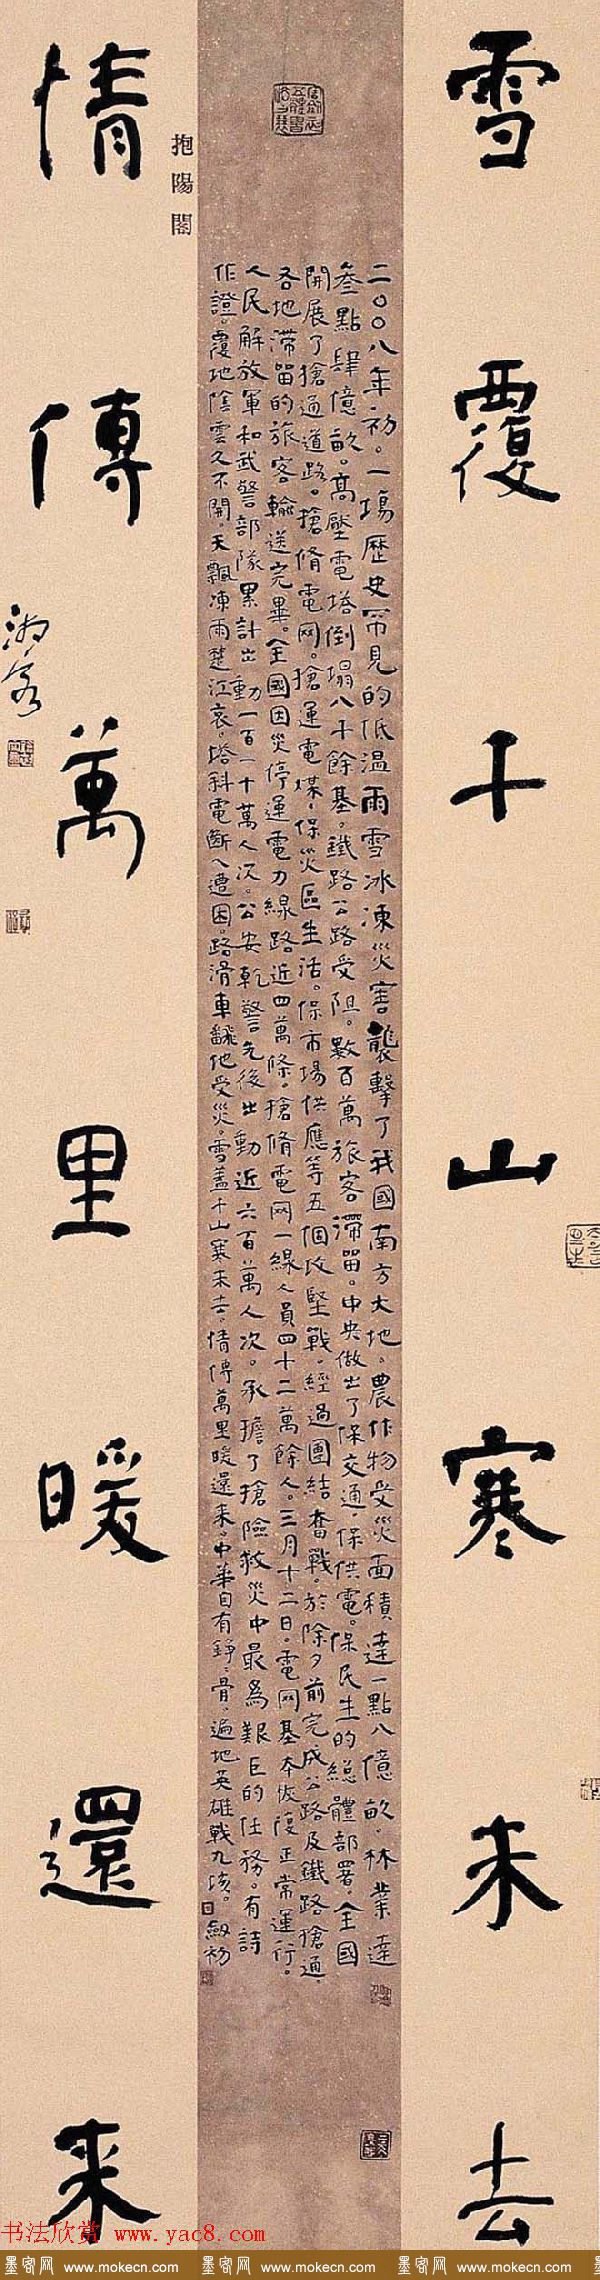 雪覆千山寒未去
二〇〇八年初。一場歷史罕見的低溫雨雪冰凍災害襲擊了我國南方大地。農作物受災面積達一點八億畝。林業達
叁點肆億畝。高壓電塔倒塌八千餘基。鐵路公路受阻。數百萬旅客滯留。中央做出了保交通。保供電。保民生的總體部署。全國
開展了搶通道路。搶脩電网。搶運電煤。保災區生活。保市場供應等五個攻堅戰。經過團結奮戰。於除夕前完成公路及鐵路搶通
各地滯留的旅客輸送完畢。全國因災停運電力線路近四萬條。搶脩電网一線人員四十二萬餘人。三月十二日。電网基本恢復正常運行。
人民解放軍和武警部隊累計出動一百一十萬人次。公安乾警先後出動近六百萬人次。承擔了搶險救災中最為艱巨的任務。有詩
作證。覆地陰雲久不開。天飄凍雨楚江哀。塔斜電斷人遭困。路滑車翻他受災。雪蓋千山寒未去。情傳萬里暖還來。中華自有錚錚骨。遍地英雄戰九垓。劍初
情傳萬里暖還來
抱陽閣
湘客
书法欣赏 www.yac8.com
墨客网 www.mokecn.com 墨客网 www.mokecn.com 墨客网 www.mokecn.com